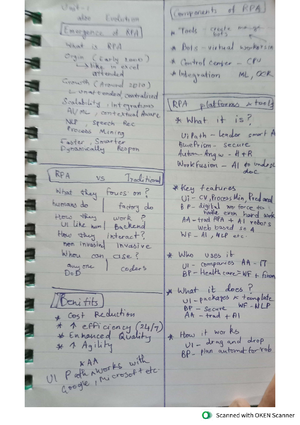 Unit-1
also Evolution
Emergence of RPA
What is RPA
Origin (Early 2000)
attended
Growth (Around 2010)
unattended centralised
Scalability, integrations
AI/ML, contextual aware
NLP, speech Rec
Process Mining
Faster, Smarter
Dynamically Respon
RPA vs Traditional
What they focus on?
humans do | factory do
How they work?
UI like hum | Backend
How they interact?
non invasive | Invasive
Whom can use?
anyone | coders
Benifits
* Cost Reduction
* ↑ efficiency (24/7)
* Enhanced Quality
* ↑ Agility
* AA
UI Path works with
Google, Microsoft etc
Components of RPA
* Tools - create manage bots
* Bots - virtual
* Control center - CPU
* Integration ML, OCR
RPA platforms & tools
* What it is?
UiPath - leader smart A
BluePrism - secure
Auto-Anyw - A+R
WorkFusion - AI to
doc
* Key features
UI - CV, Process Min,
BP - digital workforce
AA - trad RPA + AI
Web based
WF - AI, NLP etc
* Who uses it
UI - companies AA - IT
BP - Healthcare WF -
* What it does?
UI - packages & template
BP - secure WF - NLP
AA - trad + AI
* How it works
UI - drag and drop
BP - plan automat
Scanned with OKEN Scanner